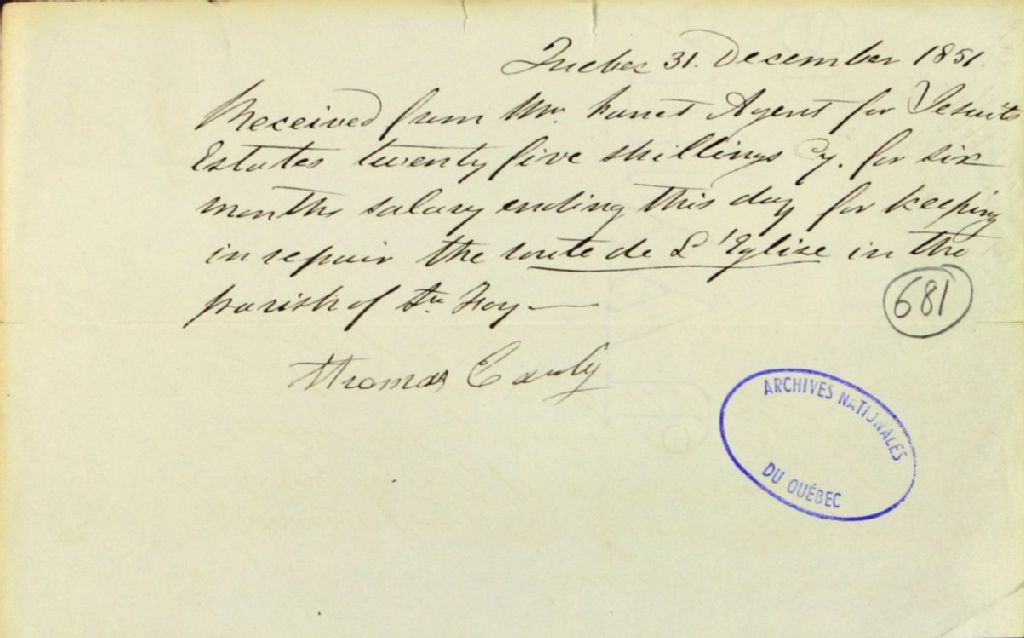 Quebec 31. December 1851.
Received from Mr. Panet Agent for Jesuits
Estates twenty five shillings Cy. for six
months salary ending this day for keeping
in repair the route de L'Eglise in the
parish of Ste. Foy —
681
Thomas
ARCHIVES NATIONALES
DU QUÉBEC